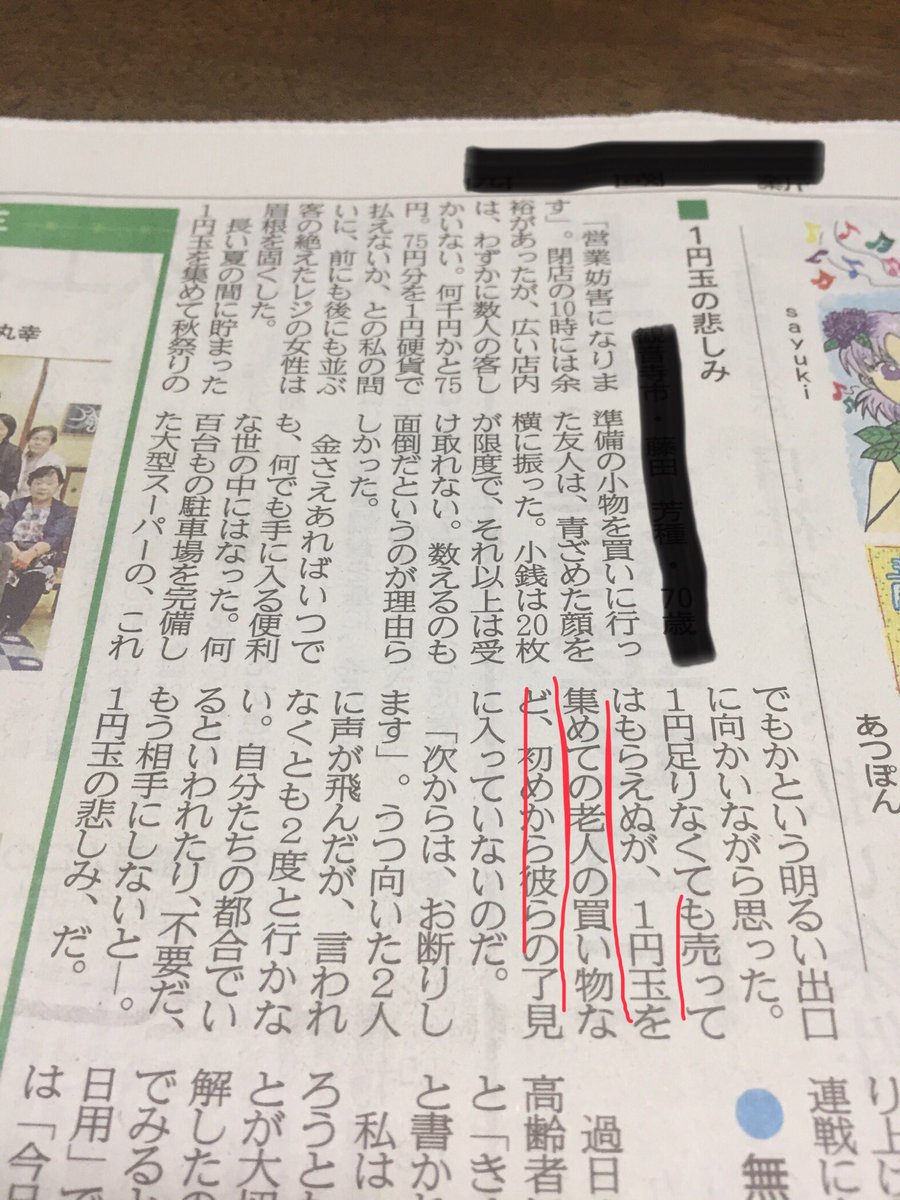 sayuki
あつぽん
■1円玉の悲しみ
「営業妨害になりま
す」。閉店の10時には余
裕があったが、広い店内
は、わずかに数人の客し
かいない。何千円かと75
円。75円分を1円硬貨で
払えないか、との私の問
いに、前にも後にも並ぶ
客の絶えたレジの女性は
眉根を固くした。
長い夏の間に貯まった
1円玉を集めて秋祭りの
準備の小物を買いに行っ
た友人は、青ざめた顔を
横に振った。小銭は20枚
が限度で、それ以上は受
け取れない。数えるのも
面倒だというのが理由ら
しかった。
金さえあればいつで
も、何でも手に入る便利
な世の中にはなった。何
百台もの駐車場を完備し
た大型スーパーの、これ
でもかという明るい出口
に向かいながら思った。
1円足りなくても売って
はもらえぬが、1円玉を
集めての老人の買い物な
ど、初めから彼らの了見
に入っていないのだ。
「次からは、お断りし
ます」。うつ向いた2人
に声が飛んだが、言われ
なくとも2度と行かな
い。自分たちの都合でい
るといわれたり、不要だ、
もう相手にしないと―。
1円玉の悲しみ、だ。
丸幸
連戦に
無
過日
高齢者
と「き
と書か
私は
ろうと
とが大
解したの
でみると
日用」で
は「今日